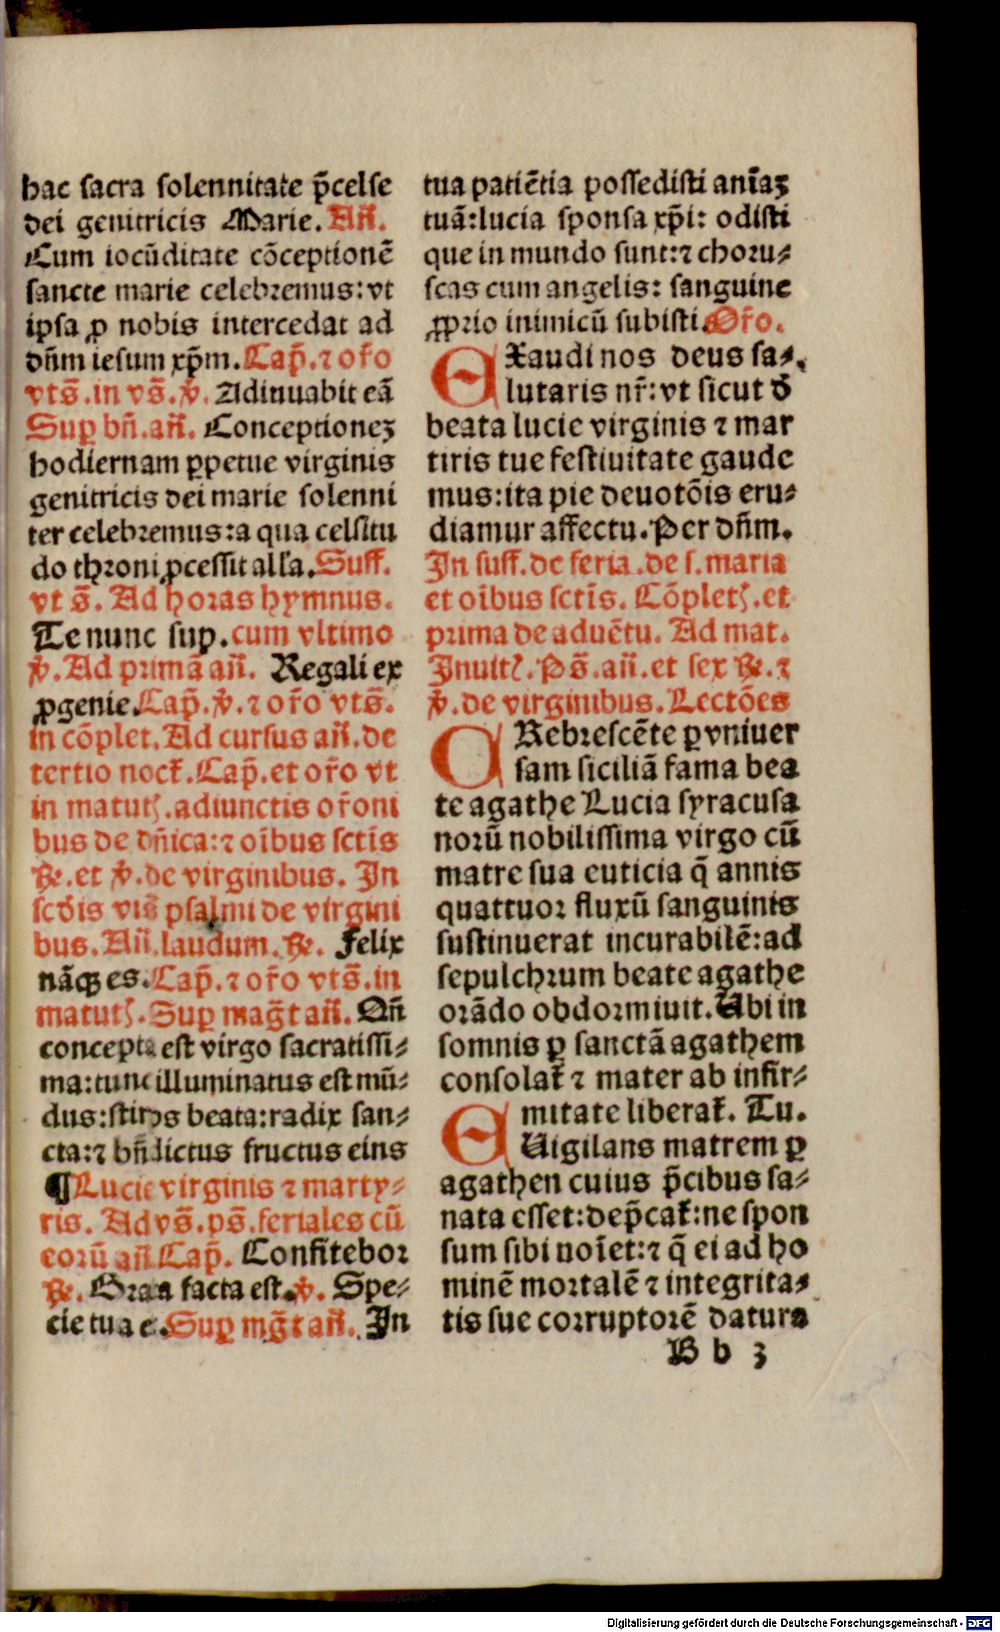 hac sacra solennitate p̄celse
dei genitricis Marie. Añ.
Cum iocūditate cōceptionē
sancte marie celebremus: vt
ipsa ꝓ nobis intercedat ad
dñm iesum xp̄m. Cap̄. ⁊ oro
vts̄. in vs̄. ℣. Adinuabit eā
Suꝑ bn̄. añ. Conceptioneꝫ
hodiernam ꝑpetue virginis
genitricis dei marie solenni
ter celebremus: a qua celsitu
do throni ꝓcessit alľa. Suff.
vt s̄. Ad horas hymnus.
Te nunc sup. cum vltimo
℣. Ad primā añ. Regali ex
ꝓgenie. Cap̄. ℣. ⁊ oro vts̄.
in cōplet. Ad cursus añ. de
tertio noct̄. Cap̄. et oro vt
in matut. adiunctis oroni
bus de dn̄ica: ⁊ oībus sctīs
℟. et ℣. de virginibus. In
scd̄is vis̄ psalmi de virgini
bus. Añ. laudum. ℟. Felix
nāqꝫ es. Cap̄. ⁊ oro vts̄. in
matut. Suꝑ maḡt añ. Qñ
concepta est virgo sacratissi⸗
ma: tunc illuminatus est mū⸗
dus: stirps beata: radix san⸗
cta: ⁊ bn̄dictus fructus eius
¶ Lucie virginis ⁊ marty⸗
ris. Ad vs̄. ps̄. feriales cū
eorū añ Cap̄. Confitebor
℟. Graa facta est. ℣. Spe⸗
cie tua e. Suꝑ mḡt añ. In
tua patiētia possedisti anīaꝫ
tuā: lucia sponsa xp̄i: odisti
que in mundo sunt: ⁊ choru⸗
scas cum angelis: sanguine
ꝓprio inimicū subisti. Oro.
EXaudi nos deus sa⸗
lutaris nr̄: vt sicut ď
beata lucie virginis ⁊ mar
tiris tue festiuitate gaude
mus: ita pie deuotōis eru⸗
diamur affectu. Per dñm.
In suff. de feria. de s. maria
et oībus sctīs. Cōplet. et
prima de aduētu. Ad mat.
Inuit. Ps̄. añ. et sex ℟. ⁊
℣. de virginibus. Lectōes
CRebrescēte ꝑ vniuer
sam siciliā fama bea
te agathe Lucia syracusa
norū nobilissima virgo cū
matre sua euticia q̄ annis
quattuor fluxū sanguinis
sustinuerat incurabilē: ad
sepulchrum beate agathe
orādo obdormiuit. Ubi in
somnis ꝑ sanctā agathem
consolat̄ ⁊ mater ab infir⸗
mitate liberat̄. Tu.
EUigilans matrem ꝑ
agathen cuius p̄cibus sa⸗
nata esset: dep̄cat̄: ne spon
sum sibi noīet: ⁊ q̄ ei ad ho
minē mortalē ⁊ integrita⸗
tis sue corruptorē datura
B b 3
Digitalisierung gefördert durch die Deutsche Forschungsgemeinschaft - DFG